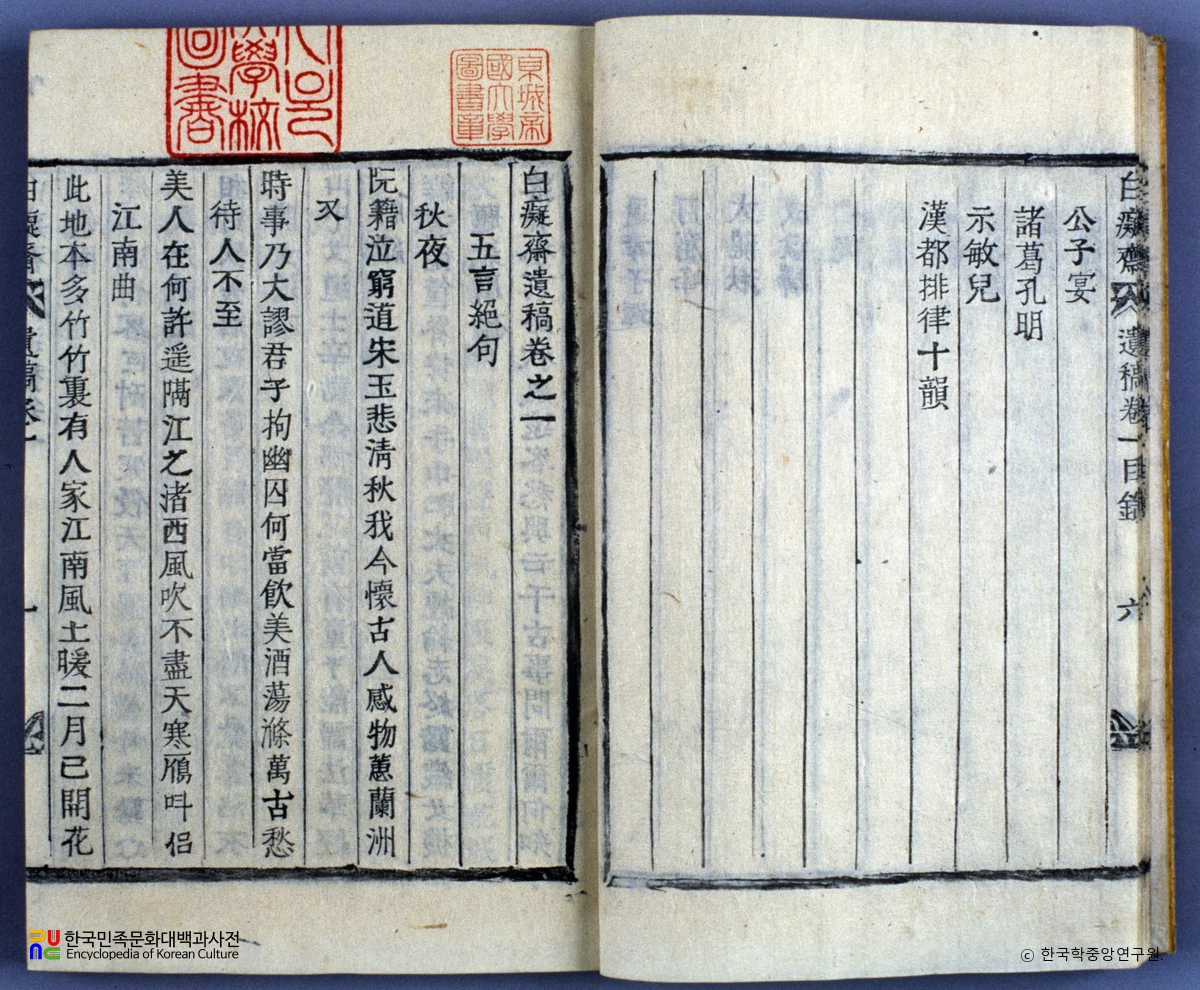 白癡齋遺稿卷一目錄 六
公子宴
諸葛孔明
示敏兒
漢都排律十韻
白癡齋遺稿卷之一
五言絕句
秋夜
阮籍泣窮道宋玉悲清秋我今懷古人感物蕙蘭洲
又
時事乃大謬君子拘幽囚何當飮美酒蕩滌萬古愁
待人不至
美人在何許遥隔江之渚西風吹不盡天寒鴈叫侶
江南曲
此地本多竹竹裏有人家江南風土暖二月已開花
白癡齋遺稿卷一 一
京城帝
國大學
圖書章
大學校
圖書
한국민족문화대백과사전
Encyclopedia of Korean Culture
ⓒ 한국학중앙연구원.